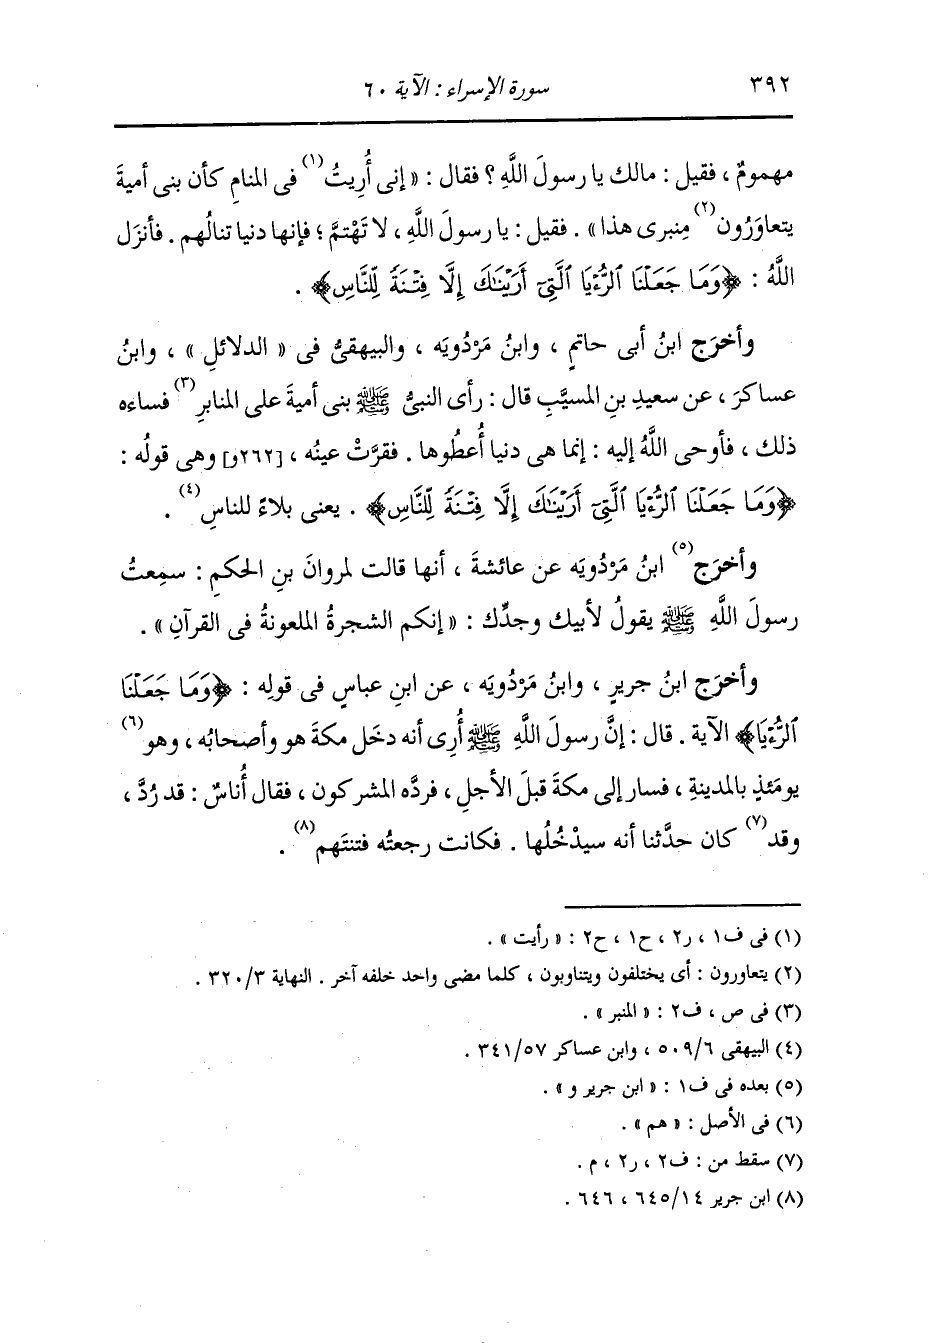 ٣٩٢ سورة الإسراء : الآية ٦٠
مهمومٌ ، فقيل : مالك يا رسولَ اللَّهِ ؟ فقال : « إنى أُرِيتُ(١) فى المنامِ كأن بنى أميةَ
يتعاوَرُون(٢) مِنبرى هذا » . فقيل : يا رسولَ اللَّهِ ، لا تَهْتمَّ ؛ فإنها دنيا تنالُهم . فأنزَل
اللَّهُ : ﴿وَمَا جَعَلْنَا ٱلرُّءْيَا ٱلَّتِىٓ أَرَيْنَٰكَ إِلَّا فِتْنَةً لِّلنَّاسِ﴾ .
وأخرَج ابنُ أبى حاتمٍ ، وابنُ مَرْدُويَه ، والبيهقىُّ فى « الدلائلِ » ، وابنُ
عساكرَ ، عن سعيدِ بنِ المسيَّبِ قال : رأى النبىُّ ﷺ بنى أميةَ على المنابرِ(٣) فساءه
ذلك ، فأوحى اللَّهُ إليه : إنما هى دنيا أُعطُوها . فقرَّتْ عينُه ، [٢٦٢و] وهى قولُه :
﴿وَمَا جَعَلْنَا ٱلرُّءْيَا ٱلَّتِىٓ أَرَيْنَٰكَ إِلَّا فِتْنَةً لِّلنَّاسِ﴾ . يعنى بلاءً للناسِ(٤) .
وأخرَج(٥) ابنُ مَرْدُويَه عن عائشةَ ، أنها قالت لمروانَ بنِ الحكمِ : سمِعتُ
رسولَ اللَّهِ ﷺ يقولُ لأبيك وجدِّك : « إنكم الشجرةُ الملعونةُ فى القرآنِ » .
وأخرَج ابنُ جريرٍ ، وابنُ مَرْدُويَه ، عن ابنِ عباسٍ فى قولِه : ﴿وَمَا جَعَلْنَا
ٱلرُّءْيَا﴾ الآية . قال : إنَّ رسولَ اللَّهِ ﷺ أُرِى أنه دخَل مكةَ هو وأصحابُه ، وهو(٦)
يومَئذٍ بالمدينةِ ، فسار إلى مكةَ قبلَ الأجلِ ، فردَّه المشركون ، فقال أُناسٌ : قد رُدَّ ،
وقد(٧) كان حدَّثنا أنه سيدْخُلُها . فكانت رجعتُه فتنتَهم(٨) .
(١) فى ف١ ، ر٢ ، ح١ ، ح٢ : « رأيت » .
(٢) يتعاورون : أى يختلفون ويتناوبون ، كلما مضى واحد خلفه آخر . النهاية ٣/ ٣٢٠ .
(٣) فى ص ، ف٢ : « المنبر » .
(٤) البيهقى ٦/ ٥٠٩ ، وابن عساكر ٥٧/ ٣٤١ .
(٥) بعده فى ف١ : « ابن جرير و » .
(٦) فى الأصل : « هم » .
(٧) سقط من : ف٢ ، ر٢ ، م .
(٨) ابن جرير ١٤/ ٦٤٥ ، ٦٤٦ .